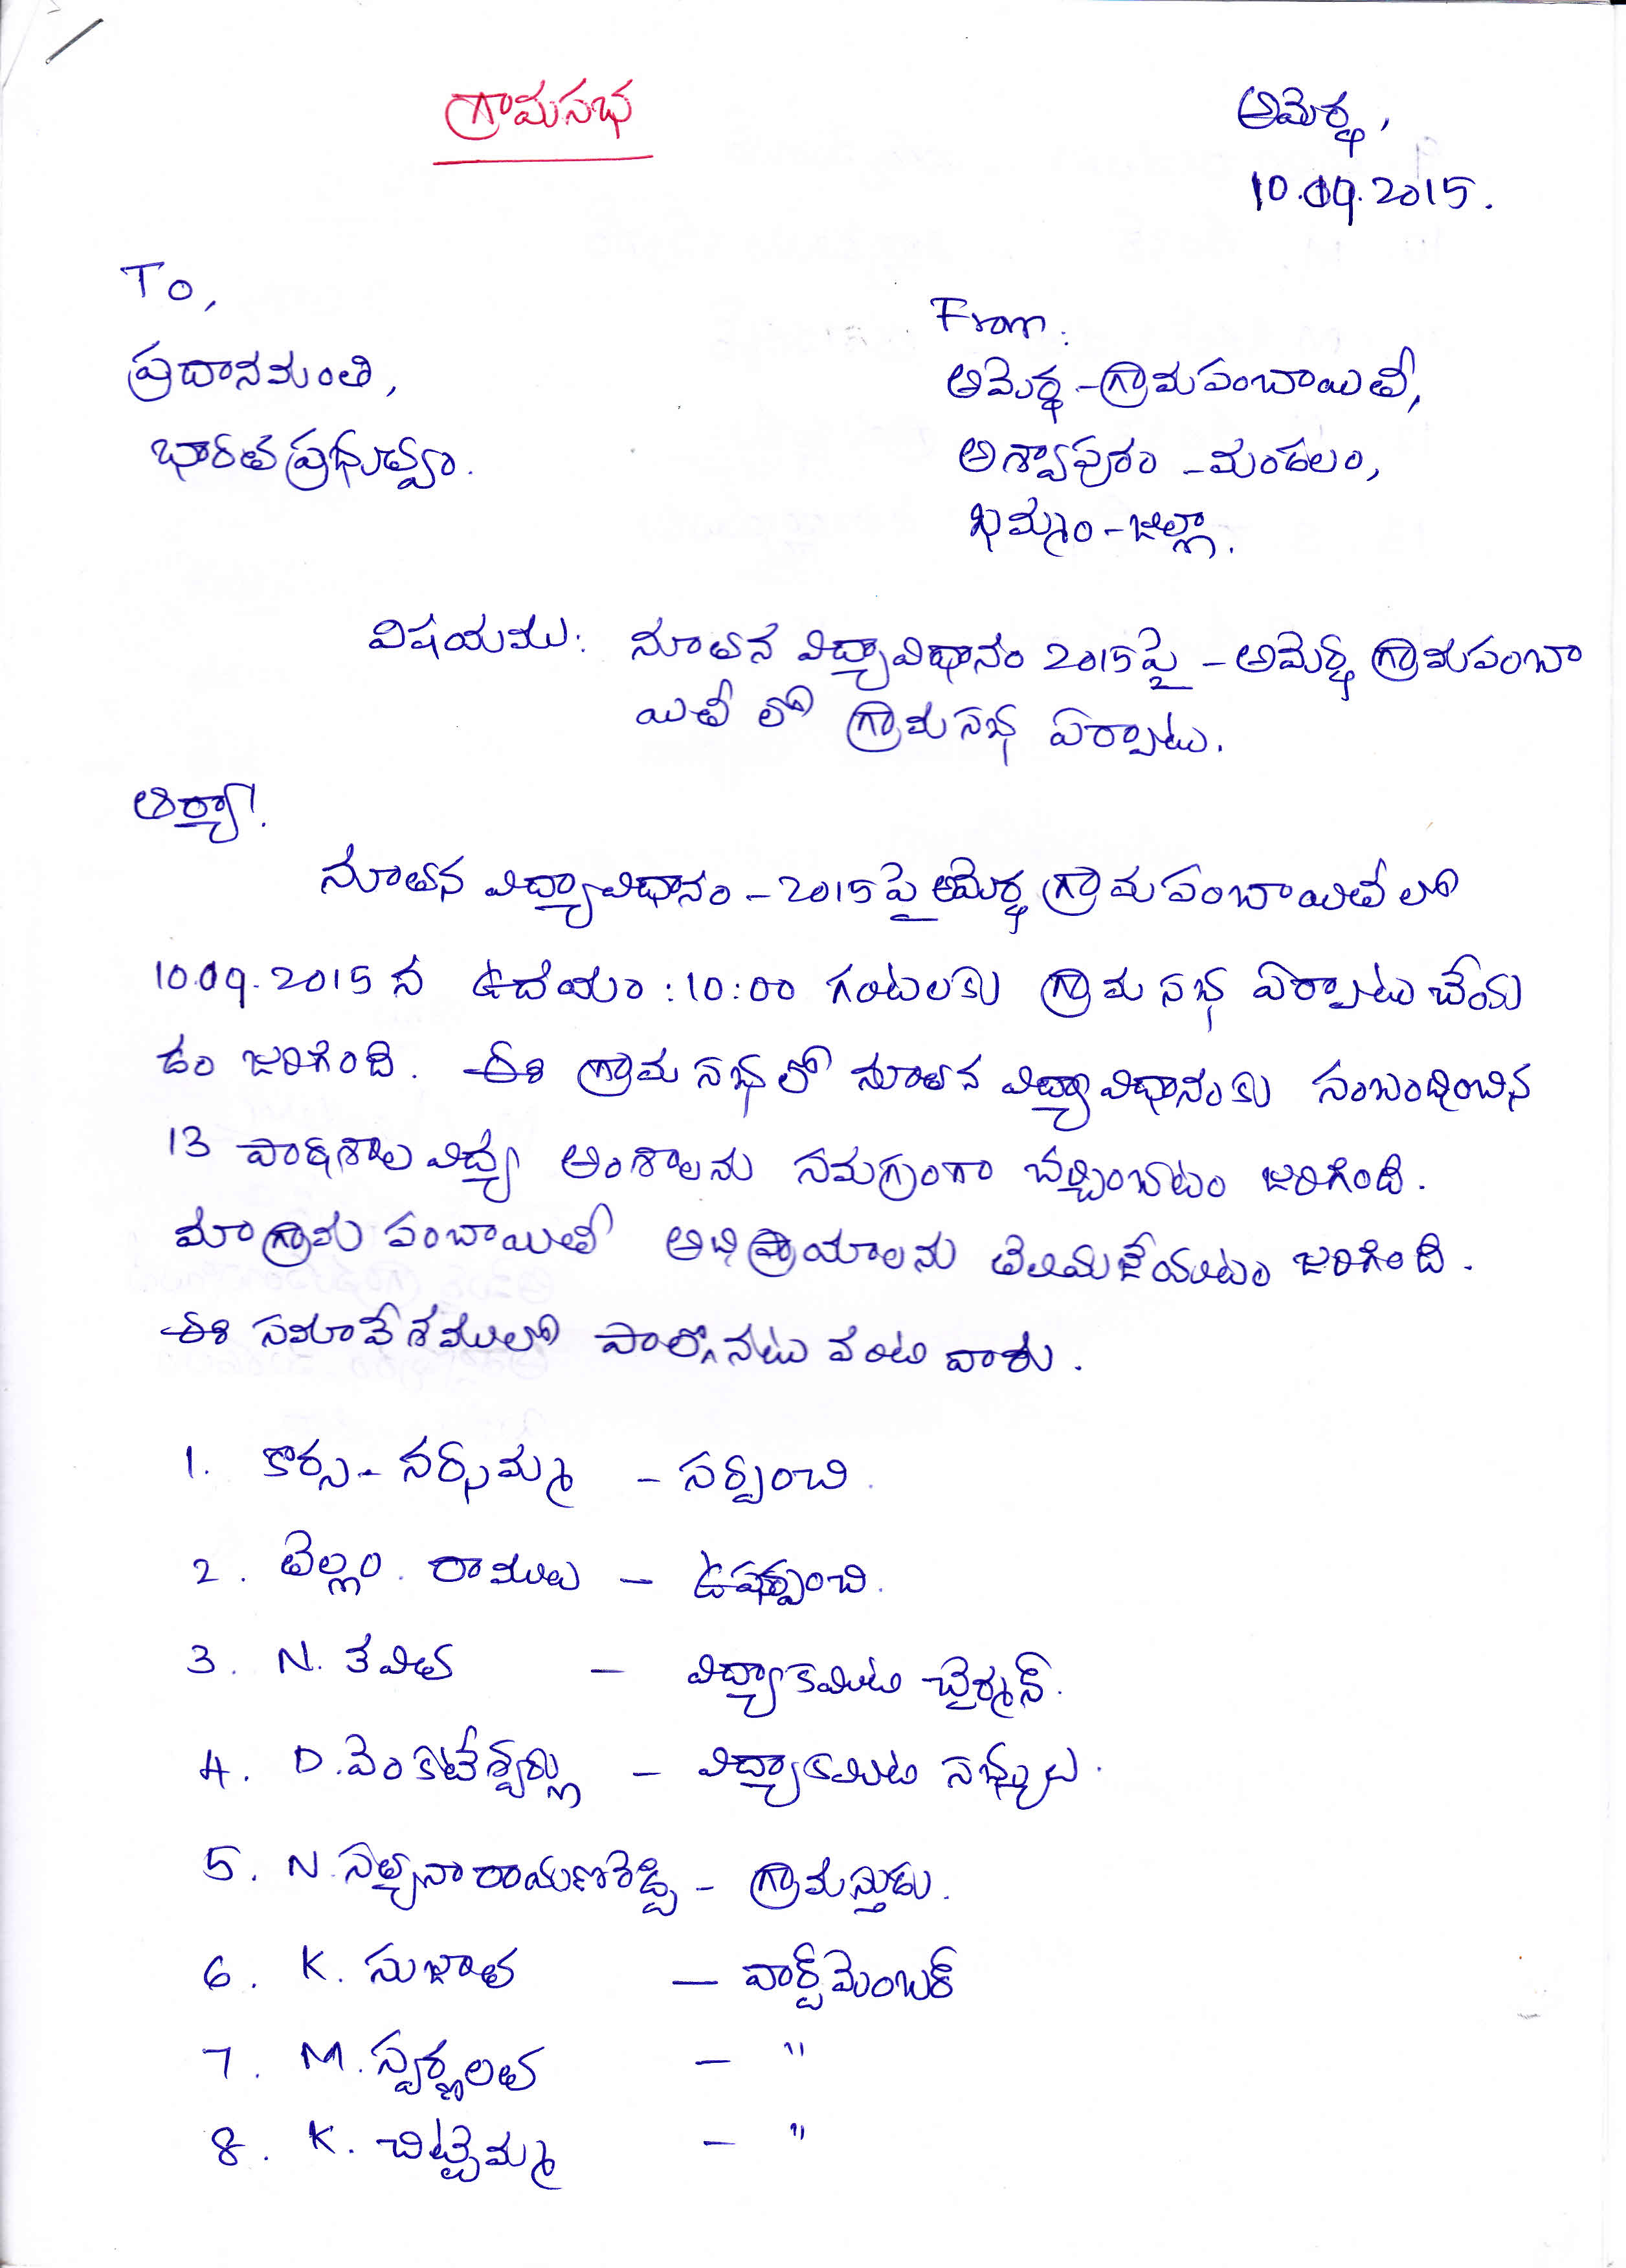 గ్రామసభ
అమెర్థ,
10.09.2015.
To,
ప్రదానమంతి,
భారత ప్రభుత్వం.
From:
అమెర్థ - గ్రామపంచాయితీ,
అశ్వాపురం - మండలం,
ఖమ్మం - జిల్లా.
విషయము: నూతన విద్యావిధానం 2015 పై - అమెర్థ గ్రామపంచా
యితీ లో గ్రామ సభ ఏర్పాటు.
ఆర్యా!
నూతన విద్యావిధానం - 2015 పై అమెర్థ గ్రామ పంచాయితీ లో
10.09.2015 న ఉదయం : 10:00 గంటలకు గ్రామ సభ ఏర్పాటు చేయ
డం జరిగింది. ఈ గ్రామ సభ లో నూతన విద్యా విధానంకు సంబంధించిన
13 పాఠశాల విద్య అంశాలను సమగ్రంగా చర్చించాటం జరిగింది.
మా గ్రామ పంచాయితీ అభిప్రాయాలను తెలియజేయటం జరిగింది.
ఈ సమావేశములో పాల్గొనటు వంటి వారు.
1. కొర్స - నర్సమ్మ - సర్పంచి.
2. తెల్లం. రాములు - ఉపసర్పంచి.
3. N. కవిత - విద్యాకమిటి చైర్మన్.
4. D. వెంకటేశ్వర్లు - విద్యాకమిటి సభ్యులు.
5. N. సత్యనారాయణరెడ్డి - గ్రామస్తుడు.
6. K. సుజాత - వార్డ్ మెంబర్
7. M. స్వర్ణలత - "
8. K. చిట్టెమ్మ - "